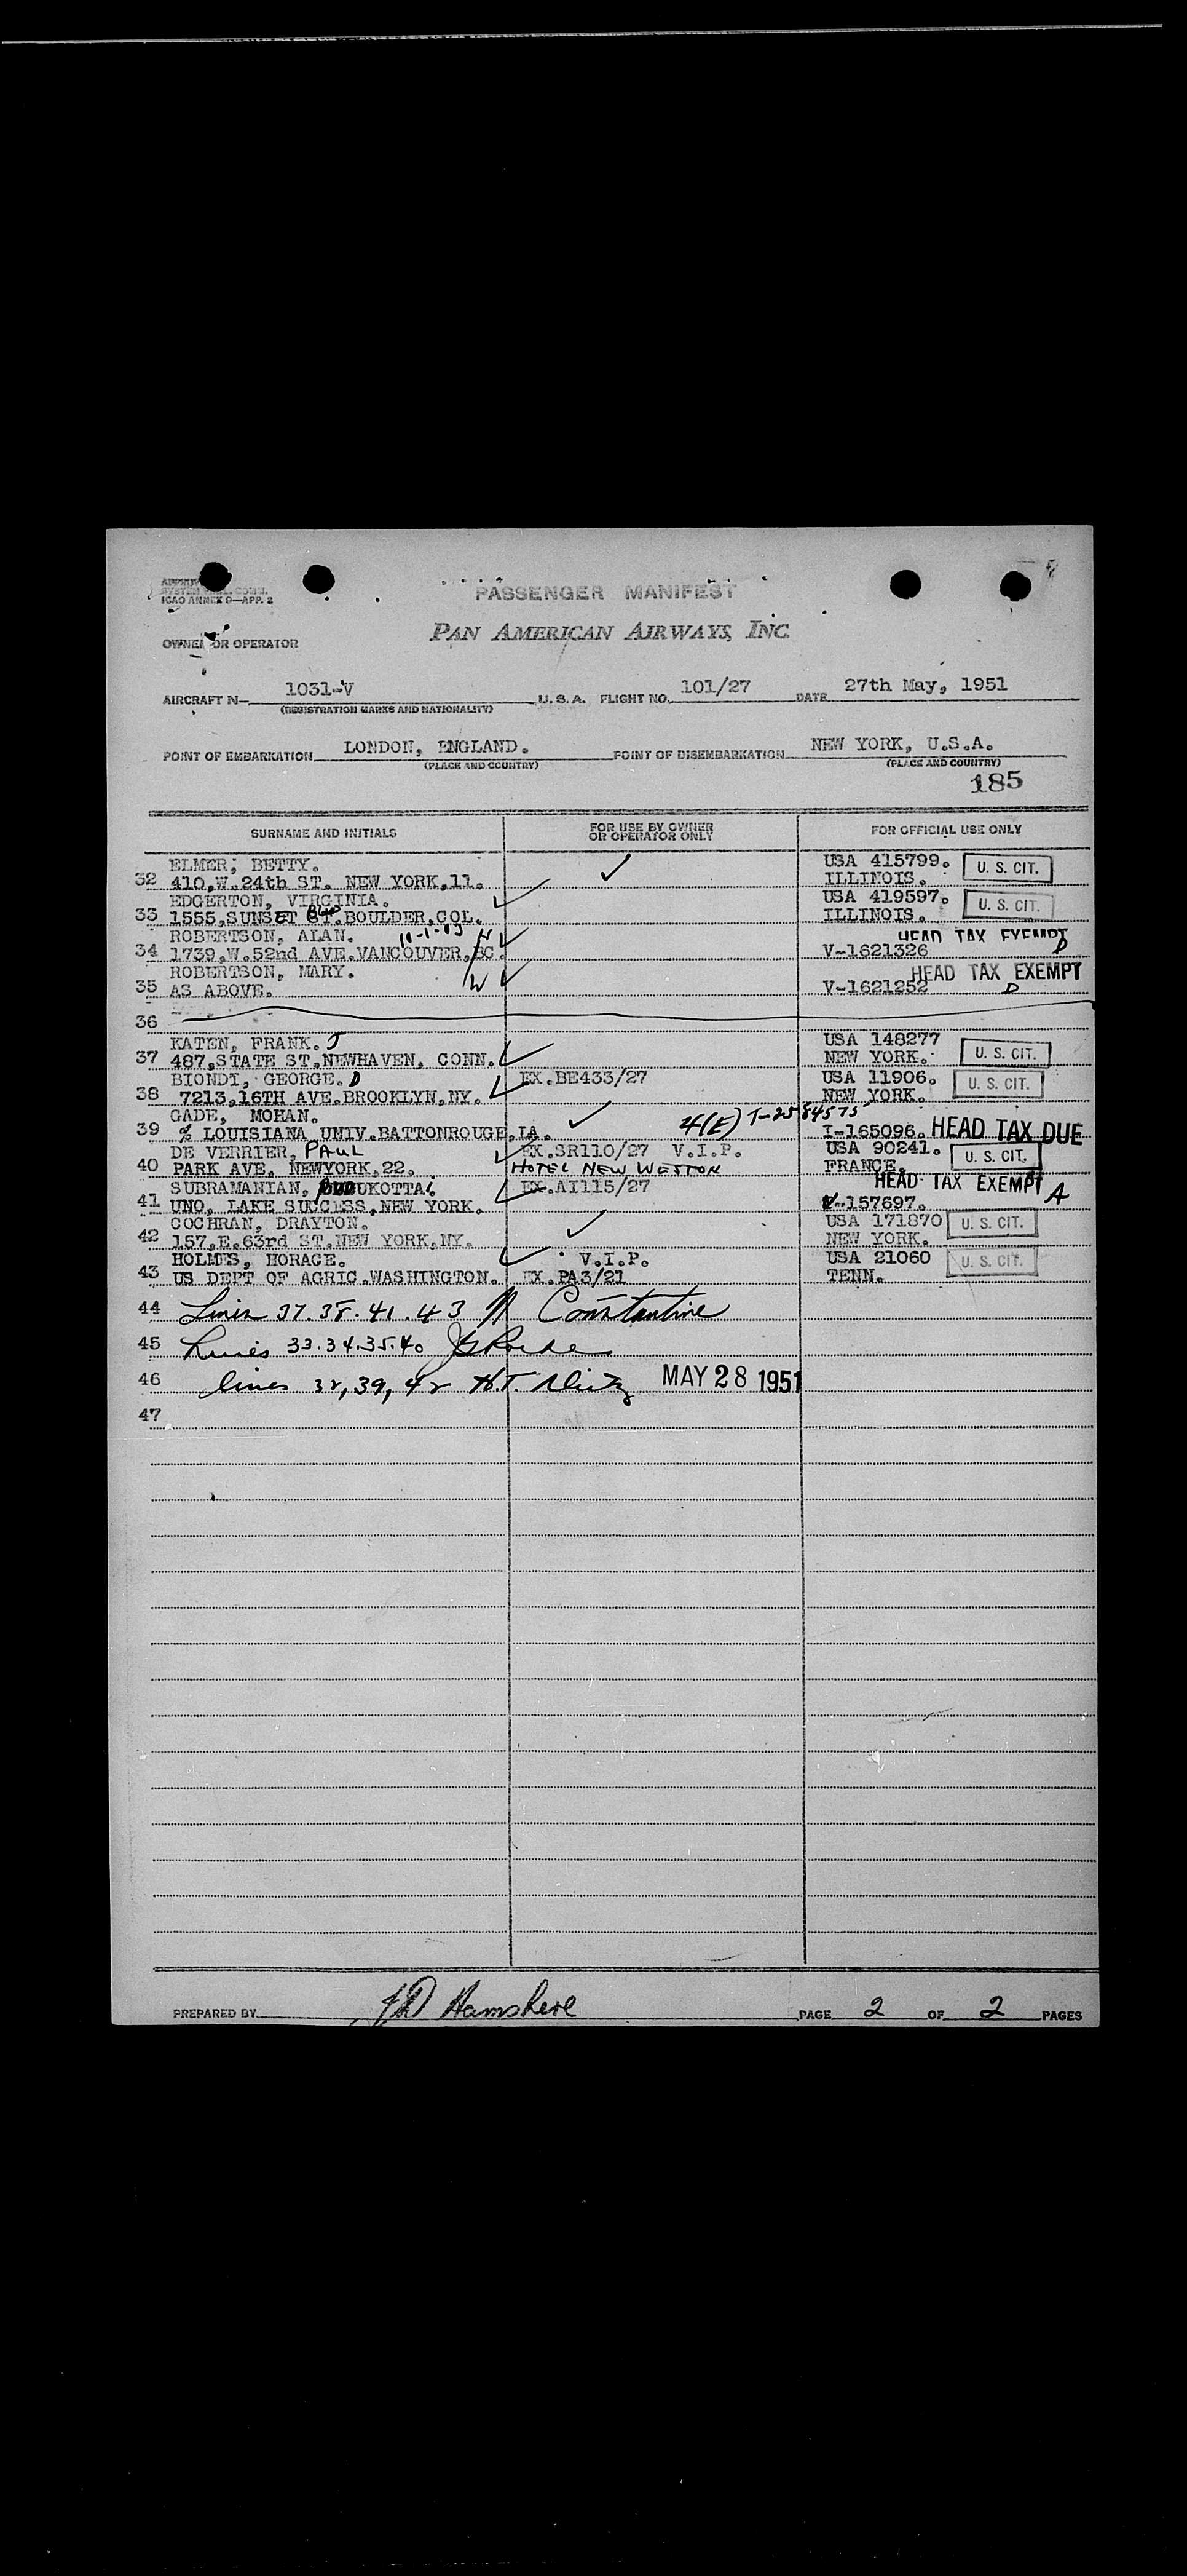 ICAO ANNEX D—APP. 2
PASSENGER MANIFEST
PAN AMERICAN AIRWAYS, INC.
OWNER OR OPERATOR
AIRCRAFT N— 1031-V U.S.A. FLIGHT NO. 101/27 DATE 27th May, 1951
(REGISTRATION MARKS AND NATIONALITY)
POINT OF EMBARKATION LONDON, ENGLAND. POINT OF DISEMBARKATION NEW YORK, U.S.A.
(PLACE AND COUNTRY) (PLACE AND COUNTRY)
185
SURNAME AND INITIALS FOR USE BY OWNER OR OPERATOR ONLY FOR OFFICIAL USE ONLY
ELMER, BETTY. USA 415799. U. S. CIT.
32 410,W.24th ST. NEW YORK,11. ILLINOIS.
EDGERTON, VIRGINIA. USA 419597. U. S. CIT.
33 1555,SUNSET ST.BOULDER,COL. ILLINOIS.
ROBERTSON, ALAN. HEAD TAX EXEMPT
34 1739,W.52nd AVE.VANCOUVER,BC. V-1621326 D
ROBERTSON, MARY. W HEAD TAX EXEMPT
35 AS ABOVE. V-1621252 D
36
KATEN, FRANK. J USA 148277
37 487,STATE ST.NEWHAVEN, CONN. NEW YORK. U. S. CIT.
BIONDI, GEORGE. D EX.BE433/27 USA 11906. U. S. CIT.
38 7213,16TH AVE.BROOKLYN,NY. NEW YORK.
GADE, MOHAN. 4(E) T-2584575
39 % LOUISIANA UNIV.BATTONROUGE,LA. I-165096. HEAD TAX DUE
DE VERRIER, PAUL EX.SR110/27 V.I.P. USA 90241. U. S. CIT.
40 PARK AVE, NEWYORK.22. HOTEL NEW WESTON FRANCE.
SUBRAMANIAN, UKOTTAI. EX.AI115/27 HEAD TAX EXEMPT A
41 UNO, LAKE SUCCESS,NEW YORK. V-157697.
COCHRAN, DRAYTON. USA 171870 U. S. CIT.
42 157,E.63rd ST.NEW YORK,NY. NEW YORK.
HOLMES, HORACE. V.I.P. USA 21060 U. S. CIT.
43 US DEPT OF AGRIC.WASHINGTON. EX.PA3/21 TENN.
44 Lines 37.38.41.43 Constantine
45 Lines 33.34.35.40
46 lines 32, 39, 42 H.T. MAY 28 1951
47
PREPARED BY J.D Hamshere PAGE 2 OF 2 PAGES